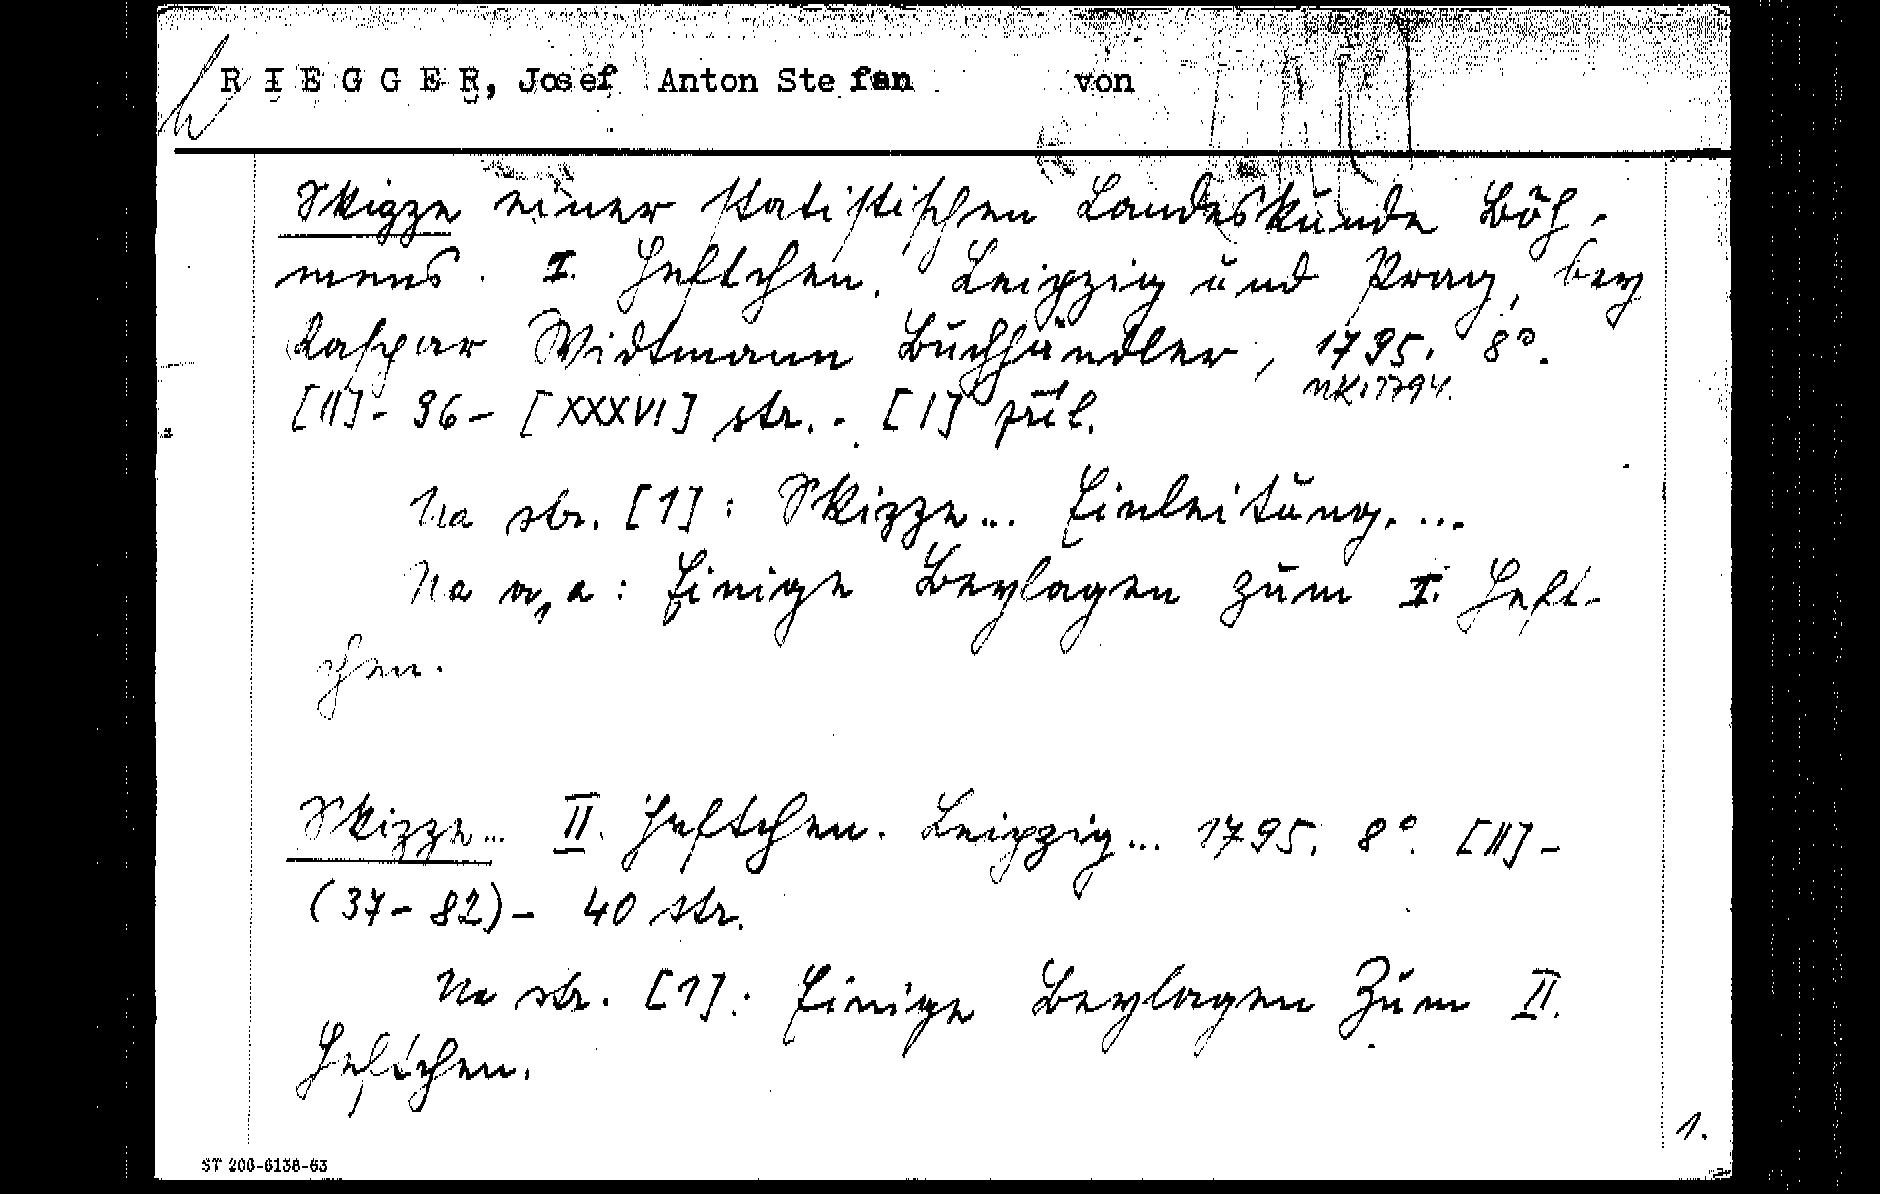 RIEGGER, Josef Anton Stefan von
Skizze einer statistischen Landeskunde Böh-
mens. I. Heftchen. Leipzig und Prag, bey
Kaspar Widtmann Buchhändler, 1795. 8°.
[II]- 36- [XXXVI] str. - [1] příl.
Na str. [1]: Skizze... Einleitung. ...
Na a: Einige Beylagen zum I. Heft-
chen.
Skizze... II. Heftchen. Leipzig... 1795. 8°. [II]-
(37-82)- 40 str.
Na str. [1]: Einige Beylagen zum II.
Heftchen.
1.
ST 206-6138-63